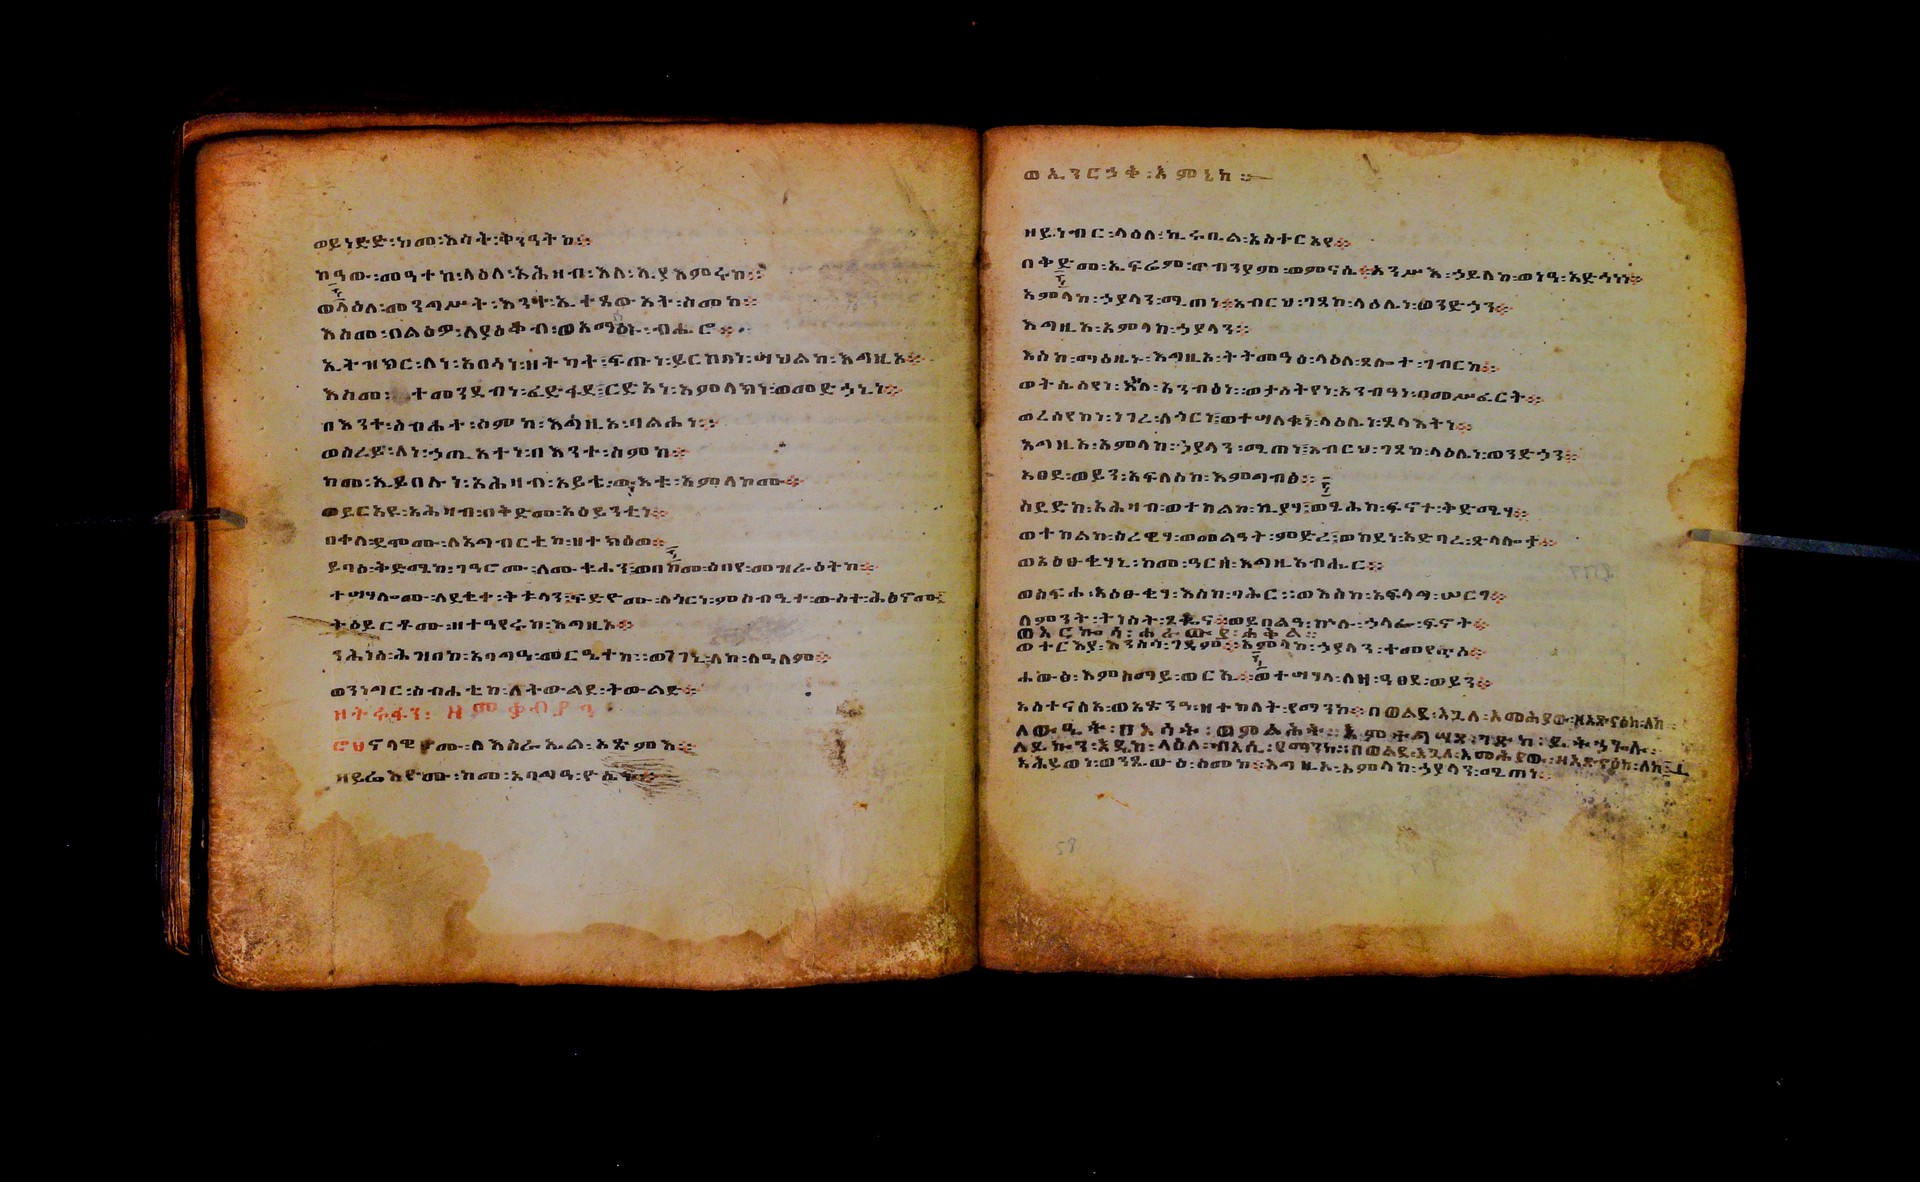 ወይነድድ፡ከመ፡እሳት፡ቅንዓትከ፨
ከዓው፡መዓተከ፡ላዕለ፡አሕዛብ፡እለ፡ኢያአምሩከ፨
ወላዕለ፡መንግሥት፡እንተ፡ኢተጸውአት፡ስመከ፨
እስመ፡በልዕዎ፡ለያዕቆብ፡ወአማሰኑ፡ብሔሮ፨
ኢትዝክር፡ለነ፡አበሳነ፡ዘትካት፡ፍጡነ፡ይርከበነ፡ሣህልከ፡እግዚኦ፨
እስመ፡ተመንደብነ፡ፈድፋደ፡ርድአነ፡አምላክነ፡ወመድኃኒነ፨
በእንተ፡ስብሐተ፡ስምከ፡እግዚኦ፡ባልሐነ፨
ወስረይ፡ለነ፡ኃጢአተነ፡በእንተ፡ስምከ፨
ከመ፡ኢይበሉነ፡አሕዛብ፡አይቴ፡ውእቱ፡አምላኮሙ፨
ወይርአዩ፡አሕዛብ፡በቅድመ፡አዕይንቲነ፨
በቀለ፡ደሞሙ፡ለአግብርቲከ፡ዘተክዕወ፨
ይባዕ፡ቅድሜከ፡ገዓሮሙ፡ለሙቁሐን፡ወበከመ፡ዕበየ፡መዝራዕትከ፨
ተሣሃሎሙ፡ለደቂቀ፡ቅቱላን፡ፍድዮሙ፡ለጎርነ፡ምስብዒተ፡ውስተ፡ሕፅኖሙ፤
ትዕይርቶሙ፡ዘተዓየሩከ፡እግዚኦ፨
ንሕነሰ፡ሕዝበከ፡አባግዓ፡መርዔትከ፨ወንገኒ፡ለከ፡ለዓለም፨
ወንነግር፡ስብሐቲከ፡ለትውልደ፡ትውልድ፨
ዘትሩፋን፡ ዘምቃብያ
ሮህኖላዊሆሙ፡ለእስራኤል፡አጽምእ፨
ዘይሬእዮሙ፡ከመ፡አባግዓ፡ዮሴፍ፨
ወኢንርኃቅ፡እምኔከ፨
ዘይነብር፡ላዕለ፡ኪሩቤል፡አስተርአየ፨
በቅድመ፡ኤፍሬም፡ወብንያም፡ወምናሴ፨አንሥእ፡ኃይለከ፡ወነዓ፡አድኅነነ፨
አምላከ፡ኃያላን፡ሚጠነ፨አብርህ፡ገጸከ፡ላዕሌነ፡ወንድኃን፨
እግዚኦ፡አምላከ፡ኃያላን፨
እስከ፡ማዕዜኑ፡እግዚኦ፡ትትመዓዕ፡ላዕለ፡ጸሎተ፡ገብርከ፨
ወትሴስየነ፡እክለ፡አንብዕነ፡ወታሰትየነ፡አንብዓነ፡በመሥፈርት፨
ወረሰየከነ፡ነገረ፡ለጎርነ፡ወተሣለቁነ፡ላዕሌነ፡ጸላእትነ፨
እግዚኦ፡አምላከ፡ኃያላን፡ሚጠነ፡አብርህ፡ገጸከ፡ላዕሌነ፡ወንድኃን፨
ዐፀደ፡ወይን፡አፍለስከ፡እምግብፅ፨
ሰደድከ፡አሕዛብ፡ወተከልከ፡ኪያሃ፡ወጼሕከ፡ፍኖተ፡ቅድሜሃ፨
ወተከልከ፡ስረዊሃ፡ወመልዓት፡ምድረ፡ወከደነ፡አድባረ፡ጽላሎታ፨
ወአዕፁቂሃኒ፡ከመ፡ዓርዘ፡እግዚአብሔር፨
ወስፍሐ፡አዕፁቂሃ፡እስከ፡ባሕር፡፡ወእስከ፡አፍላግ፡ሠርፃ፨
ለምንት፡ትነስት፡ጸቈና፡ወይበልዓ፡ኵሉ፡ኃላፌ፡ፍኖት፨
ወአርኰሳ፡ሐራውያ፡ሐቅል፨
ወተርእያ፡እንስሳ፡ገዳም፨አምላከ፡ኃያላን፡ተመየጥሰ፨
ሐውፅ፡እምሰማይ፡ወርኢ፨ወተሣሃላ፡ለዛ፡ዓፀደ፡ወይን፨
አስተናስኣ፡ወአጽንዓ፡ዘተከለት፡የማንከ፨በወልደ፡እጓለ፡እመሕያው፡ዘአጽናዕከ፡ለከ፨
ለውዒት፡በእሳት፡ወምልሕት፡እምተግሣጸ፡ገጽከ፡ይትኃጐሉ፨
ለይኩን፡እዴከ፡ላዕለ፡ብእሲ፡የማንከ፨በወልደ፡እጓለ፡እመሕያው፡ዘአጽናዕከ፡ለከ፨
አሕይወነ፡ወንጼውዕ፡ስመከ፨እግዚኦ፡አምላከ፡ኃያላን፡ሚጠነ፨
58